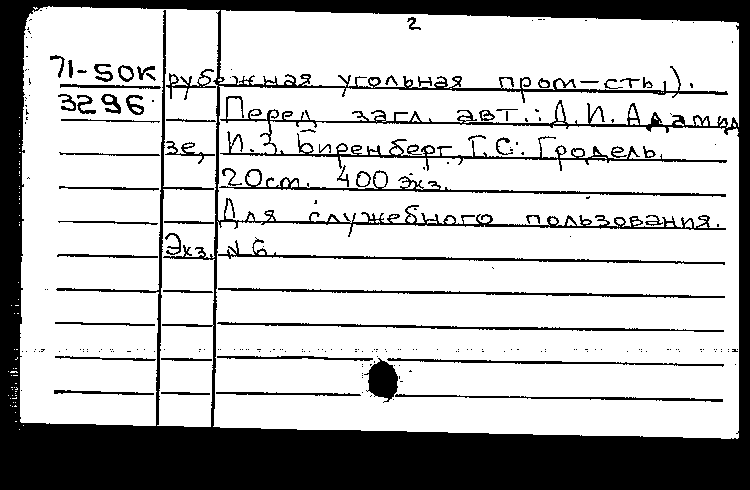 2
71-50к рубежная угольная пром-сть).
3296 Перед загл. авт.: Д.И. Адамид
зе, И.З. Биренберг, Г.С. Гродель.
20см. 400 экз.
Для служебного пользования.
Экз. №6.